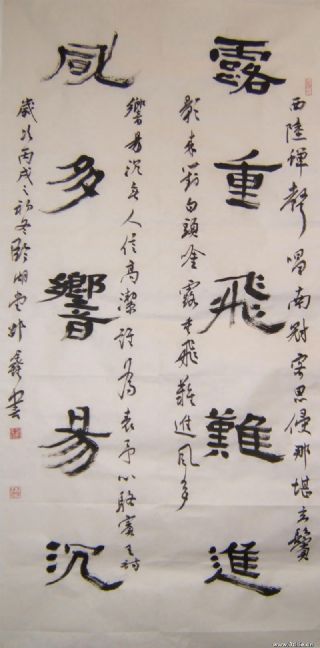 西陸蟬聲唱南冠客思侵那堪玄鬢
露重飛難進
影來對白頭吟露重飛難進風多
響易沉無人信高潔誰為表予心駱賓王詩
風多響易沉
歲次丙戌之初冬 書
www.9dlife.cn